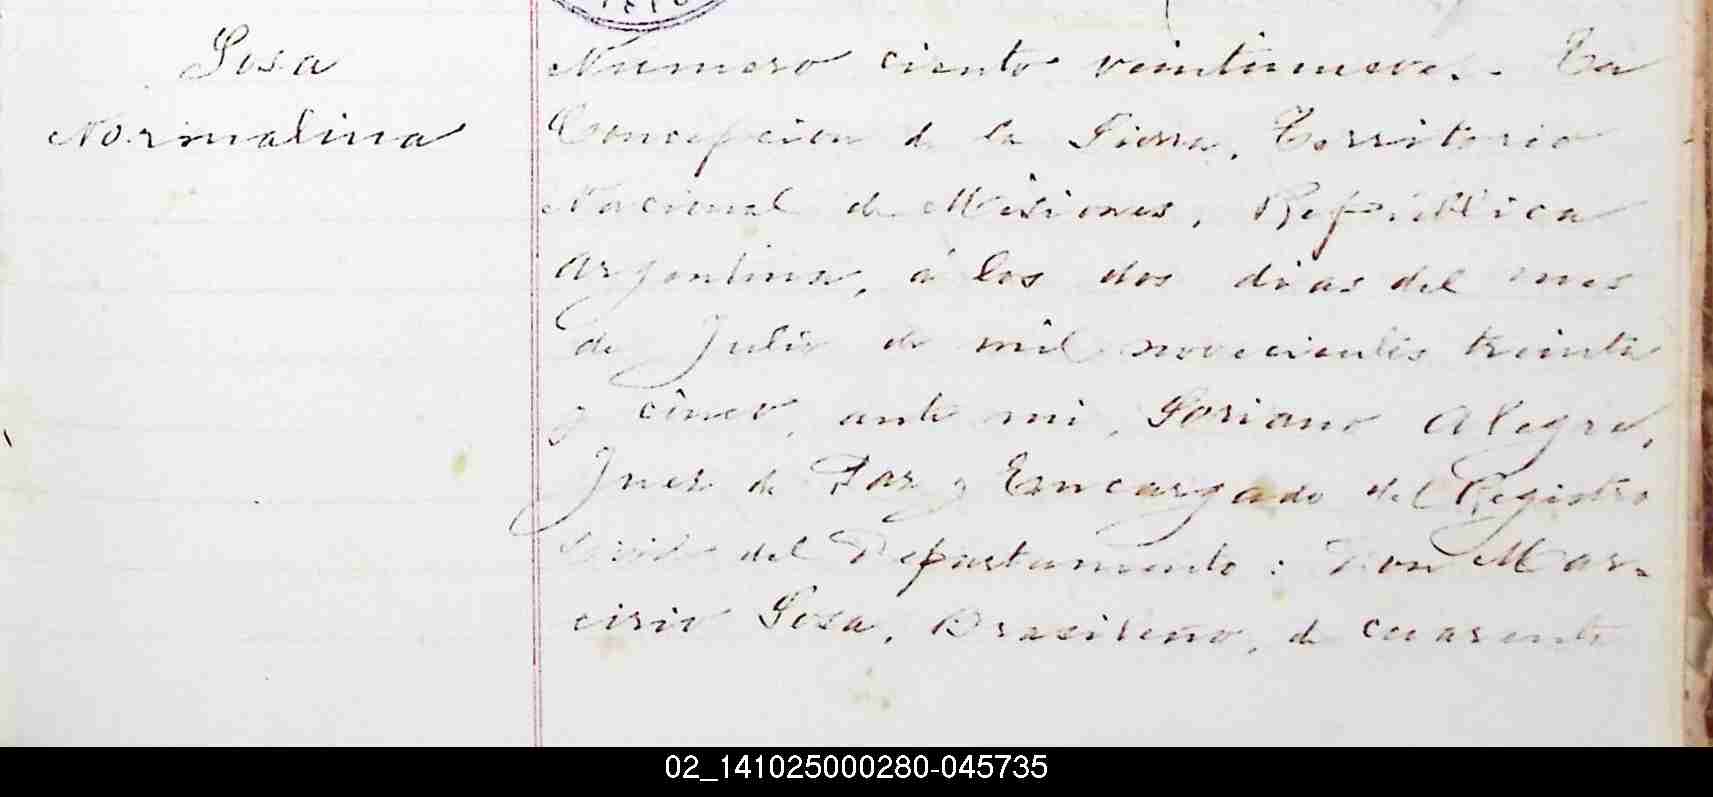 Sosa
Normalina
Numero ciento veintinueve. En
Concepcion de la Sierra, Territorio
Nacional de Misiones, República
Argentina, á los dos dias del mes
de Julio de mil novecientos treinta
y cinco, ante mi, Soriano Alegre,
Juez de Paz y Encargado del Registro
Civil del Departamento: Don Mar-
cirio Sosa, Brasileño, de cuarenta
02_141025000280-045735